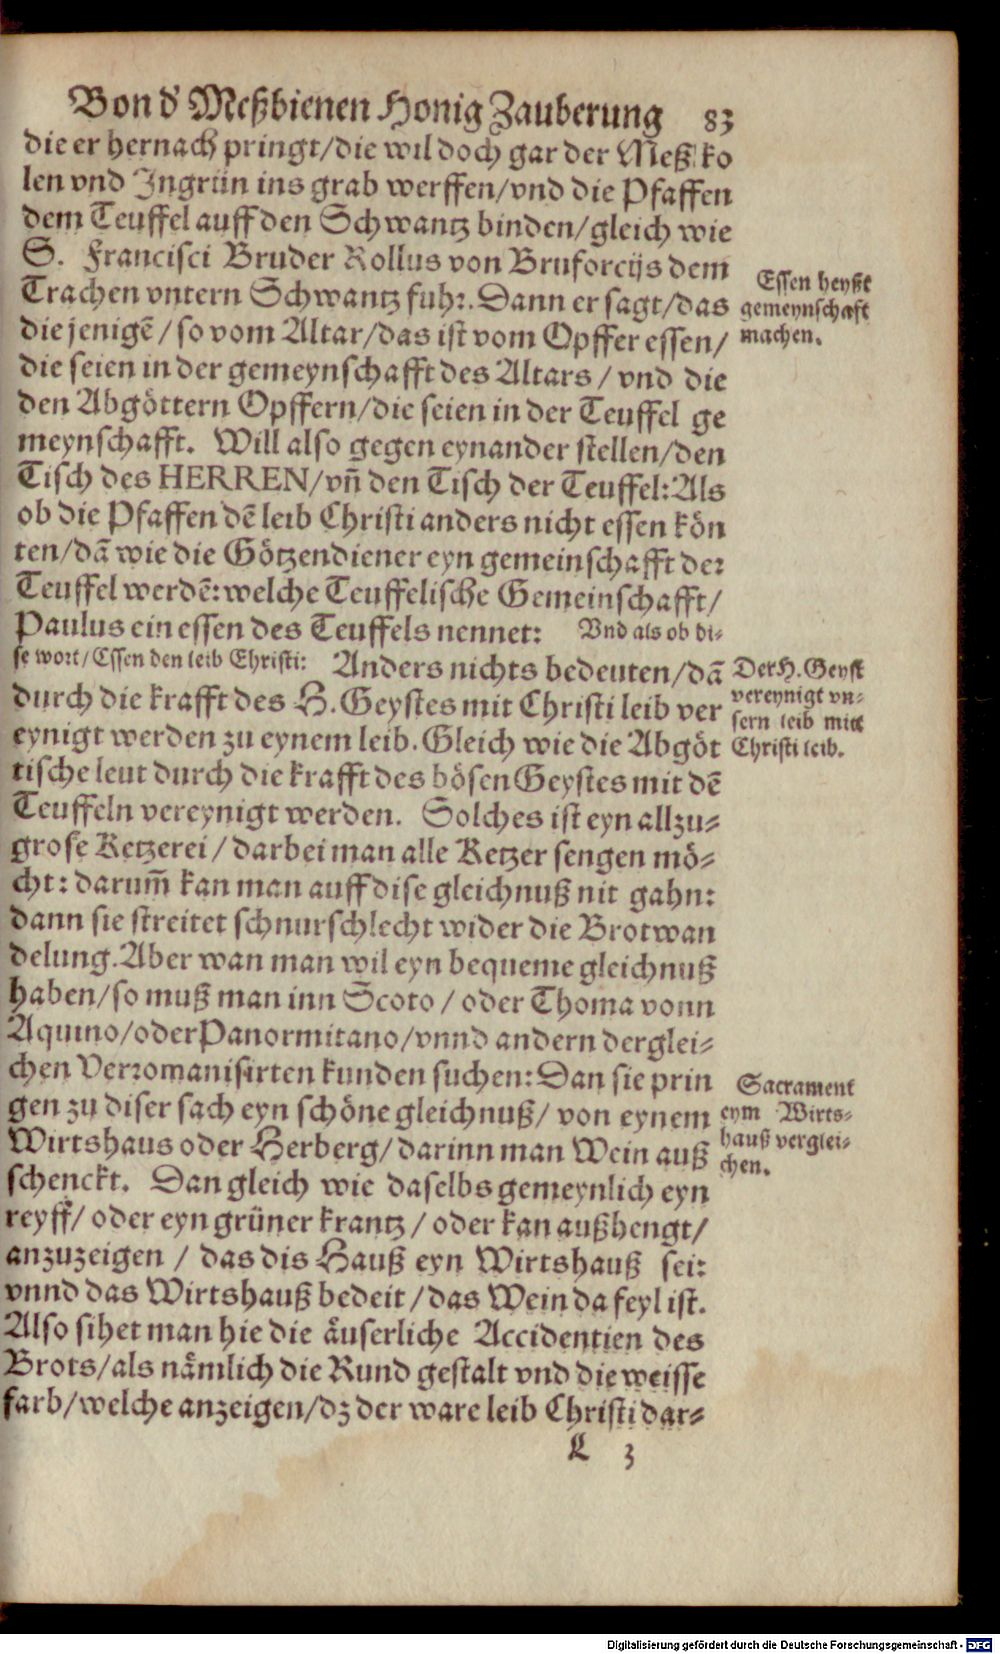 Von d' Meßbienen Honig Zauberung 83
die er hernach pringt/die wil doch gar der Meß ko
len vnd Ingrün ins grab werffen/vnd die Pfaffen
dem Teuffel auff den Schwantz binden/gleich wie
S. Francisci Bruder Rollus von Bruforcijs dem
Trachen vntern Schwantz fuhr. Dann er sagt/das
die jenigē/so vom Altar/das ist vom Opffer essen/
die seien in der gemeynschafft des Altars/vnd die
den Abgöttern Opffern/die seien in der Teuffel ge
meynschafft. Will also gegen eynander stellen/den
Tisch des HERREN/vn̄ den Tisch der Teuffel: Als
ob die Pfaffen dē leib Christi anders nicht essen kön
ten/dā wie die Götzendiener eyn gemeinschafft der
Teuffel werdē: welche Teuffelische Gemeinschafft/
Paulus ein essen des Teuffels nennet: Vnd als ob di-
se wort/Essen den leib Christi: Anders nichts bedeuten/dā
durch die krafft des H. Geystes mit Christi leib ver
eynigt werden zu eynem leib. Gleich wie die Abgöt
tische leut durch die krafft des bösen Geystes mit dē
Teuffeln vereynigt werden. Solches ist eyn allzu-
grose Ketzerei/darbei man alle Ketzer sengen mö-
cht: darum̄ kan man auff dise gleichnuß nit gahn:
dann sie streitet schnurschlecht wider die Brotwan
delung. Aber wan man wil eyn bequeme gleichnuß
haben/so muß man inn Scoto/oder Thoma vonn
Aquino/oder Panormitano/vnnd andern derglei-
chen Verromanisirten kunden suchen: Dan sie prin
gen zu diser sach eyn schöne gleichnuß/von eynem
Wirtshaus oder Herberg/darinn man Wein auß
schenckt. Dan gleich wie daselbs gemeynlich eyn
reyff/oder eyn grüner krantz/oder kan außhengt/
anzuzeigen/das dis Hauß eyn Wirtshauß sei:
vnnd das Wirtshauß bedeit/das Wein da feyl ist.
Also sihet man hie die äuserliche Accidentien des
Brots/als nämlich die Rund gestalt vnd die weisse
farb/welche anzeigen/dz der ware leib Christi dar-
L 3
Essen heyßt
gemeynschaft
machen.
Der H. Geyst
vereynigt vn-
sern leib mitt
Christi leib.
Sacrament
eym Wirts-
hauß verglei-
chen.
Digitalisierung gefördert durch die Deutsche Forschungsgemeinschaft - DFG